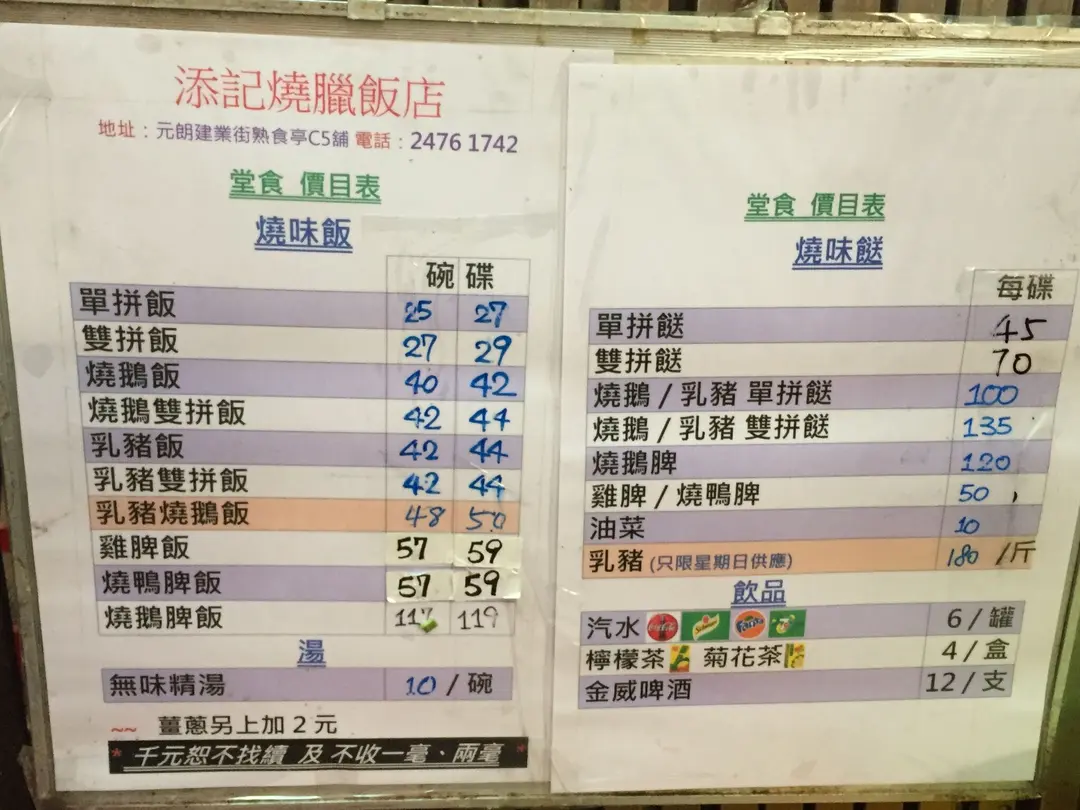 添記燒臘飯店
地址：元朗建業街熟食亭C5舖 電話：2476 1742
堂食 價目表
燒味飯
碗 碟
單拼飯 25 27
雙拼飯 27 29
燒鵝飯 40 42
燒鵝雙拼飯 42 44
乳豬飯 42 44
乳豬雙拼飯 42 44
乳豬燒鵝飯 48 50
雞脾飯 57 59
燒鴨脾飯 57 59
燒鵝脾飯 117 119
湯
無味精湯 10 / 碗
~~ 薑蔥另上加 2 元
* 千元恕不找續 及 不收一毫、兩毫 *
堂食 價目表
燒味餸
每碟
單拼餸 45
雙拼餸 70
燒鵝 / 乳豬 單拼餸 100
燒鵝 / 乳豬 雙拼餸 135
燒鵝脾 120
雞脾 / 燒鴨脾 50
油菜 10
乳豬 (只限星期日供應) 180 /斤
飲品
汽水 6 / 罐
檸檬茶 菊花茶 4 / 盒
金威啤酒 12 / 支